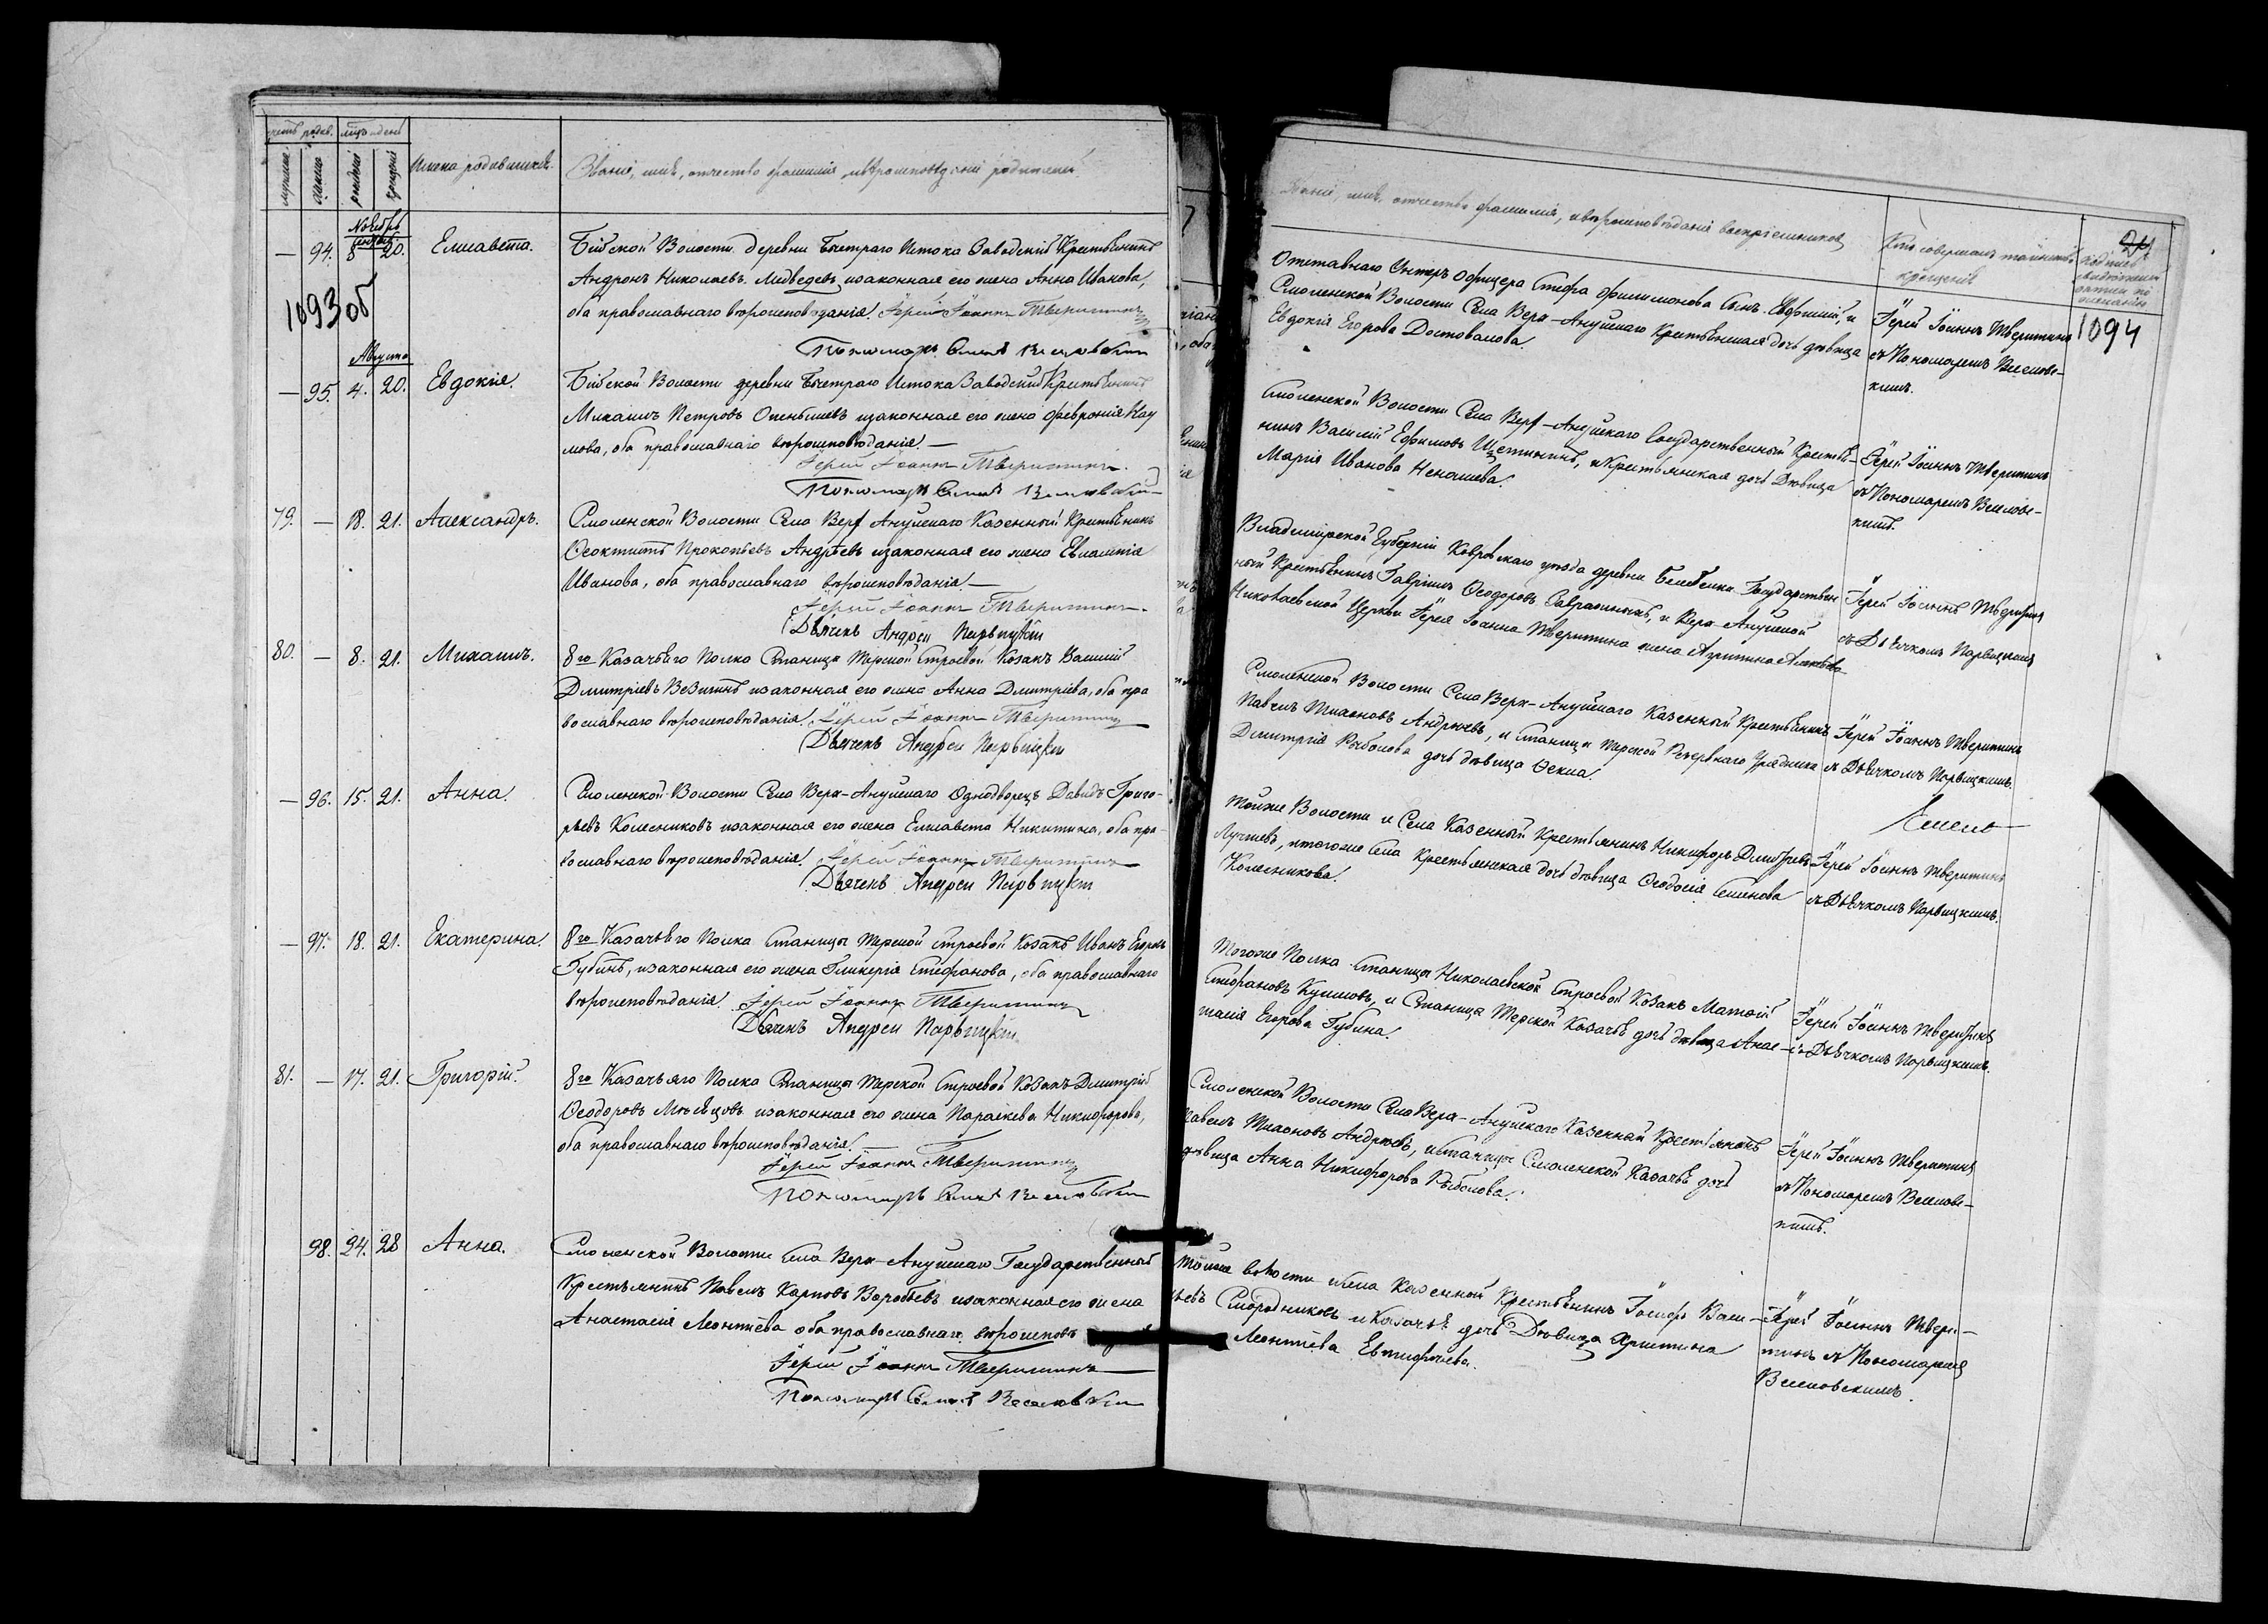 счетъ родив. мѣсяцъ и день
мужеска женска рожденiя крещенiя
Имена родившихся.
Званiе, имя, отчество фамилiя и вѣроисповѣданiе родителей.
Ноябрь
— 94. 8 20. Елисавета.
Бiйской Волости деревни Быстраго Истока Заводскiй Крестьянинъ
Андронъ Николаевъ Медведевъ изаконная его жена Анна Иванова,
оба православнаго вѣроисповѣданiя. Iерей Iоаннъ Тверитинъ
1093 об
Пономарь Веселовскiй
Августа
— 95. 4. 20. Евдокiя.
Бiйской Волости деревни Быстраго Истока Заводскiй Крестьянинъ
Михаилъ Петровъ изаконная его жена Феѵронiя Нау
мова, оба православнаго вѣроисповѣданiя. —
Iерей Iоаннъ Тверитинъ.
Пономарь Веселовскiй
79. — 18. 21. Александръ.
Смоленской Волости Села Верх Ануйскаго Казенный Крестьянинъ
Ѳеоктистъ Прокопьевъ Андрѣевъ изаконная его жена Евлампiя
Иванова, оба православнаго вѣроисповѣданiя. —
Iерей Iоаннъ Тверитинъ.
Дьячекъ Андрей Парвицкiй
80. — 8. 21. Михаилъ.
8го Казачьяго Полка Станицы Терской Строевой Козакъ Василiй
Дмитрiевъ изаконная его жена Анна Дмитрiева, оба пра
вославнаго вѣроисповѣданiя. Iерей Iоаннъ Тверитинъ
Дьячекъ Андрей Парвицкiй
— 96. 15. 21. Анна.
Смоленской Волости Села Верх-Ануйскаго Однодворецъ Давидъ Григо-
рьевъ Колесниковъ изаконная его жена Елисавета Никитина, оба пра-
вославнаго вѣроисповѣданiя. Iерей Iоаннъ Тверитинъ
Дьячекъ Андрей Парвицкiй
— 97. 18. 21. Екатерина.
8го Казачьяго Полка Станицы Терской Строевой Козакъ Иванъ Егоровъ
Губинъ, изаконная его жена Гликерiя Стефанова, оба православнаго
вѣроисповѣданiя. Iерей Iоаннъ Тверитинъ
Дьячекъ Андрей Парвицкiй
81. — 17. 21. Григорiй.
8го Казачьяго Полка Станицы Терской Строевой Козакъ Дмитрiй
Ѳеодоровъ изаконная его жена Параскева Никифорова,
оба православнаго вѣроисповѣданiя.
Iерей Iоаннъ Тверитинъ
Пономарь Веселовскiй
98. 24. 28 Анна.
Смоленской Волости Села Верх-Ануйскаго Государственный
Крестьянинъ Павелъ Карповъ Воробьевъ изаконная его жена
Анастасiя Леонтiева оба православнаго вѣроисповѣ
Iерей Iоаннъ Тверитинъ
Пономарь Веселовскiй
Званiе, имя, отчество фамилiя, и вѣроисповѣданiе воспрiемниковъ
Кто совершалъ таинство
крещенiя
1094
Отставнаго Унтеръ Офицера Стефа Филимонова Сынъ Евфимiй, и
Смоленской Волости Села Верх-Ануйскаго Крестьянская дочь дѣвица
Евдокiя Егорова Достовалова.
Iерей Iоаннъ Тверитинъ
съ Пономаремъ Веселовс-
кимъ.
Смоленской Волости Села Верх-Ануйскаго Государственный Крестья-
нинъ Василiй Ефимовъ Щетининъ, и Крестьянская дочь Дѣвица
Марiя Иванова Ненашева.
Iерей Iоаннъ Тверитинъ
съ Пономаремъ Веселовс-
кимъ.
Владимiрской Губернiи Ковровскаго уѣзда деревни Государствен
ный Крестьянинъ Гаврiилъ Ѳеодоровъ и Верх-Ануйской
Николаевской Церкви Iерея Iоанна Тверитина жена Агрипина
Iерей Iоаннъ Тверитинъ
съ Дьячкомъ Парвицкимъ
Смоленской Волости Села Верх-Ануйскаго Казенный Крестьянинъ
Павелъ Тихоновъ Андрѣевъ, и Станицы Терской Резервнаго Урядника
Димитрiя Рыболова дочь дѣвица Ѳекла.
Iерей Iоаннъ Тверитинъ
съ Дьячкомъ Парвицкимъ.
Тойже Волости и Села Казенный Крестьянинъ Никифоръ Дмитрiевъ
и тогоже Села Крестьянская дочь дѣвица Ѳеодосiя Семенова
Колесникова.
Iерей Iоаннъ Тверитинъ
съ Дьячкомъ Парвицкимъ.
Тогоже Полка Станицы Николаевской Строевой Козакъ Матѳiй
Стефановъ и Станицы Терской Казачья дочь дѣвица Анас-
тасiя Егорова Губина.
Iерей Iоаннъ Тверитинъ
съ Дьячкомъ Парвицкимъ.
Смоленской Волости Села Верх-Ануйскаго Казенный Крестьянинъ
Павелъ Тихоновъ Андрѣевъ, и Станицы Смоленской Казачья дочь
дѣвица Анна Никифорова Рыболова.
Iерей Iоаннъ Тверитинъ
съ Пономаремъ Веселовс-
кимъ.
Тойже волости и Села Казенной Крестьянинъ Iосифъ Васи-
льевъ Смородниковъ и Казачья дочь Дѣвица Христина
Леонтiева Евтифѣева.
Iерей Iоаннъ Твери-
тинъ съ Пономаремъ
Веселовскимъ.